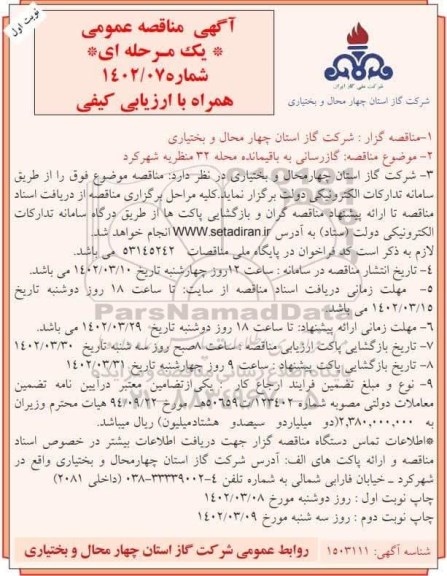 نوبت اول
آگهی مناقصه عمومی
* یک مـرحله ای*
شماره۱۴۰۲/۰۷
همراه با ارزیابی کیفی
شرکت ملی گاز ایران
شرکت گاز استان چهار محال و بختیاری
۱-مناقصه گزار : شرکت گاز استان چهار محال و بختیاری
۲- موضوع مناقصه: گازرسانی به باقیمانده محله ۳۲ منظریه شهرکرد
۳- شرکت گاز استان چهارمحال و بختیاری در نظر دارد: مناقصه موضوع فوق را از طریق
سامانه تدارکات الکترونیکی دولت برگزار نماید.کلیه مراحل برگزاری مناقصه از دریافت اسناد
مناقصه تا ارائه پیشنهاد مناقصه گران و بازگشایی پاکت ها از طریق درگاه سامانه تدارکات
الکترونیکی دولت (ستاد) به آدرس www.setadiran.ir انجام خواهد شد.
لازم به ذکر است کد فراخوان در پایگاه ملی مناقصات ۵۳۱۴۵۲۴۲ می باشد.
۴- تاریخ انتشار مناقصه در سامانه : ساعت ۱۲روز چهارشنبه تاریخ ۱۴۰۲/۰۳/۱۰ می باشد.
۵- مهلت زمانی دریافت اسناد مناقصه از سایت: تا ساعت ۱۸ روز دوشنبه تاریخ
۱۴۰۲/۰۳/۱۵ می باشد.
۶- مهلت زمانی ارائه پیشنهاد: تا ساعت ۱۸ روز دوشنبه تاریخ ۱۴۰۲/۰۳/۲۹ می باشد.
۷- تاریخ بازگشایی پاکت ارزیابی مناقصه :ساعت ۸صبح روز سه شنبه تاریخ ۱۴۰۲/۰۳/۳۰
۸- تاریخ بازگشایی پاکت پیشنهاد : ساعت ۹ روز چهارشنبه تاریخ ۱۴۰۲/۰۳/۳۱
۹- نوع و مبلغ تضمین فرایند ارجاع کار : یکی‌ازتضامین معتبر درآیین نامه تضمین
معاملات دولتی مصوبه شماره ۱۲۳۴۰۲/ت۵۰۶۵۹هـ مورخ ۹۴/۰۹/۲۲ هیات محترم وزیران
به مبلغ ۲,۳۸۰,۰۰۰,۰۰۰(دو میلیاردو سیصدو هشتادمیلیون) ریال میباشد.
*اطلاعات تماس دستگاه مناقصه گزار جهت دریافت اطلاعات بیشتر در خصوص اسناد
مناقصه و ارائه پاکت های الف: آدرس شرکت گاز استان چهارمحال و بختیاری واقع در
شهرکرد ـ خیابان فارابی شمالی به شماره تلفن ۴-۳۳۳۳۹۰۰۲-۰۳۸ (داخلی ۲۰۸۱)
چاپ نوبت اول : روز دوشنبه مورخ ۱۴۰۲/۰۳/۰۸
چاپ نوبت دوم : روز سه شنبه مورخ ۱۴۰۲/۰۳/۰۹
شناسه آگهی: ۱۵۰۳۱۱۱
روابط عمومی شرکت گاز استان چهار محال و بختیاری
ParsNamadData